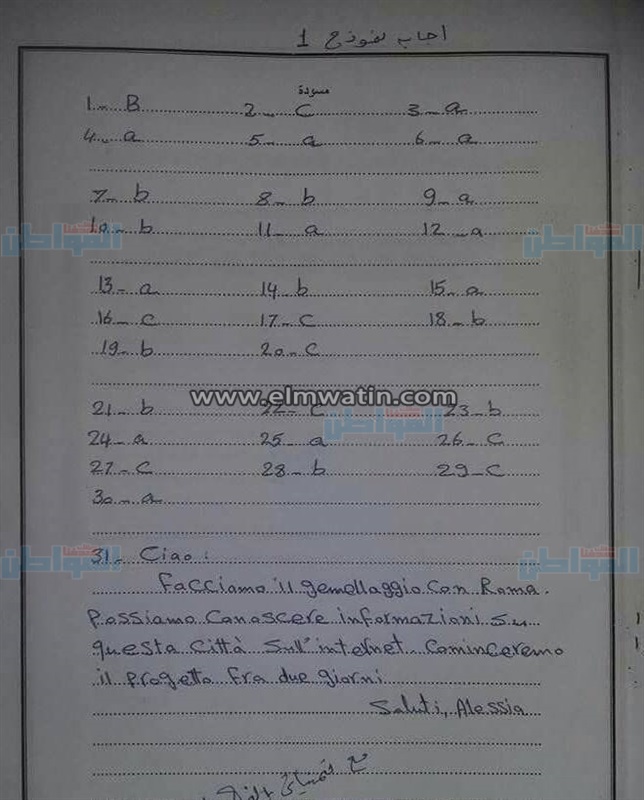 اجاب نموذج 1
مسودة
1- B 2- C 3- a
4- a 5- a 6- a
7- b 8- b 9- a
10- b 11- a 12- a
13- a 14- b 15- a
16- c 17- C 18- b
19- b 20- C
www.elmwatin.com
21- b 22- C 23- b
24- a 25- a 26- C
27- C 28- b 29- C
30- a
31- Ciao:
Facciamo il gemellaggio Con Roma.
Possiamo Conoscere informazioni su
questa Città Sull'internet. Cominceremo
il progetto Fra due giorni
Saluti, Alessia
مع تمنياتي
المواطن
المواطن
المواطن
المواطن
المواطن